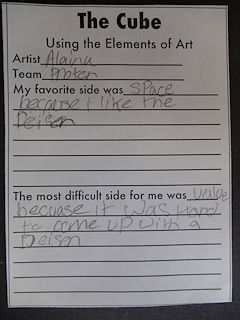 The Cube
Using the Elements of Art
Artist Alaina
Team Proten
My favorite side was SPace
because i like the
Deison
The most difficult side for me was value
because it was hard
to come up with a
Deison